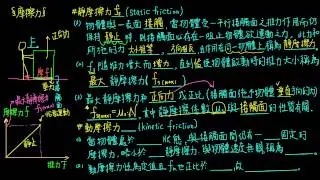 §摩擦力§
推力
摩擦力
正向力
最大靜摩擦力
f_s(max)
推力F
#靜摩擦力 f_s (static friction)
(1) 物體與一表面接觸,當物體受一平行接觸面之推力作用而仍
保持靜止時,則接觸面必存在一阻止物體欲運動之力,此力和
所施的力大小相等、方向相反,且作用在同一物體上稱為靜摩擦力。
(2) f_s 隨推力增大而增大,直到恰使物體啟動時的推力大小稱為
最大靜摩擦力( f_s(max) )
(3) 最大靜摩擦力和正向力成正比(接觸面施予物體垂直方向的力)
f_s(max)=μ_s·N 其中靜摩擦係數(μ_s)與接觸面的性質有關。
#動摩擦力 (kinetic friction)
(1) 當物體處於 狀態,與接觸面間仍有一固定的
摩擦力,略小於 靜摩擦力,與物體速度無關稱為
(2) 動摩擦力恆為定值且 f_k 也正比於 ,故